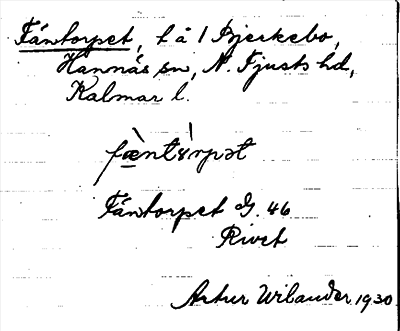 Fäntorpet, t å 1 Bjerkebo,
Hannäs sn, N. Tjusts hd,
Kalmar l.
fæ̀ntɤ̀rpət
Fäntorpet G. 46
Rivet
Artur Wilander 1930